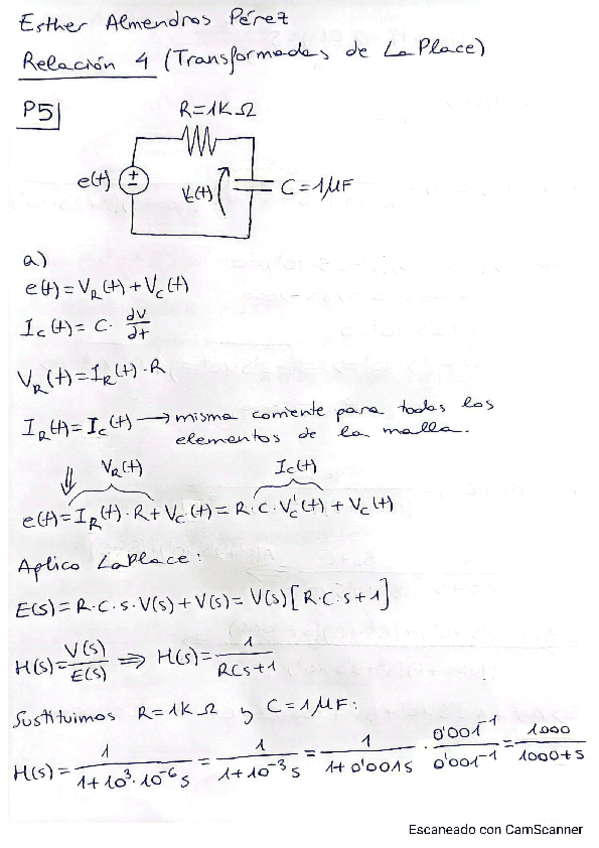 Esther Almendros Pérez
Relación 4 (Transformadas de LaPlace)
P5
R=1KΩ
e(t)
Vc(t)
C=1μF
a)
e(t)=V_R(t)+V_C(t)
I_C(t)=C· dV/dt
V_R(t)=I_R(t)·R
I_R(t)=I_C(t) → misma corriente para todos los
elementos de la malla.
V_R(t) I_C(t)
⇓
e(t)=I_R(t)·R+V_C(t)=R·C·V_C'(t)+V_C(t)
Aplico LaPlace:
E(s)=R·C·s·V(s)+V(s)=V(s)[R·C·s+1]
H(s)=V(s)/E(s) ⇒ H(s)=1/(RCs+1)
Sustituimos R=1KΩ y C=1μF:
H(s)=1/(1+10³·10⁻⁶s)=1/(1+10⁻³s)=1/(1+0'001s)·0'001⁻¹/0'001⁻¹=1000/(1000+s)
Escaneado con CamScanner